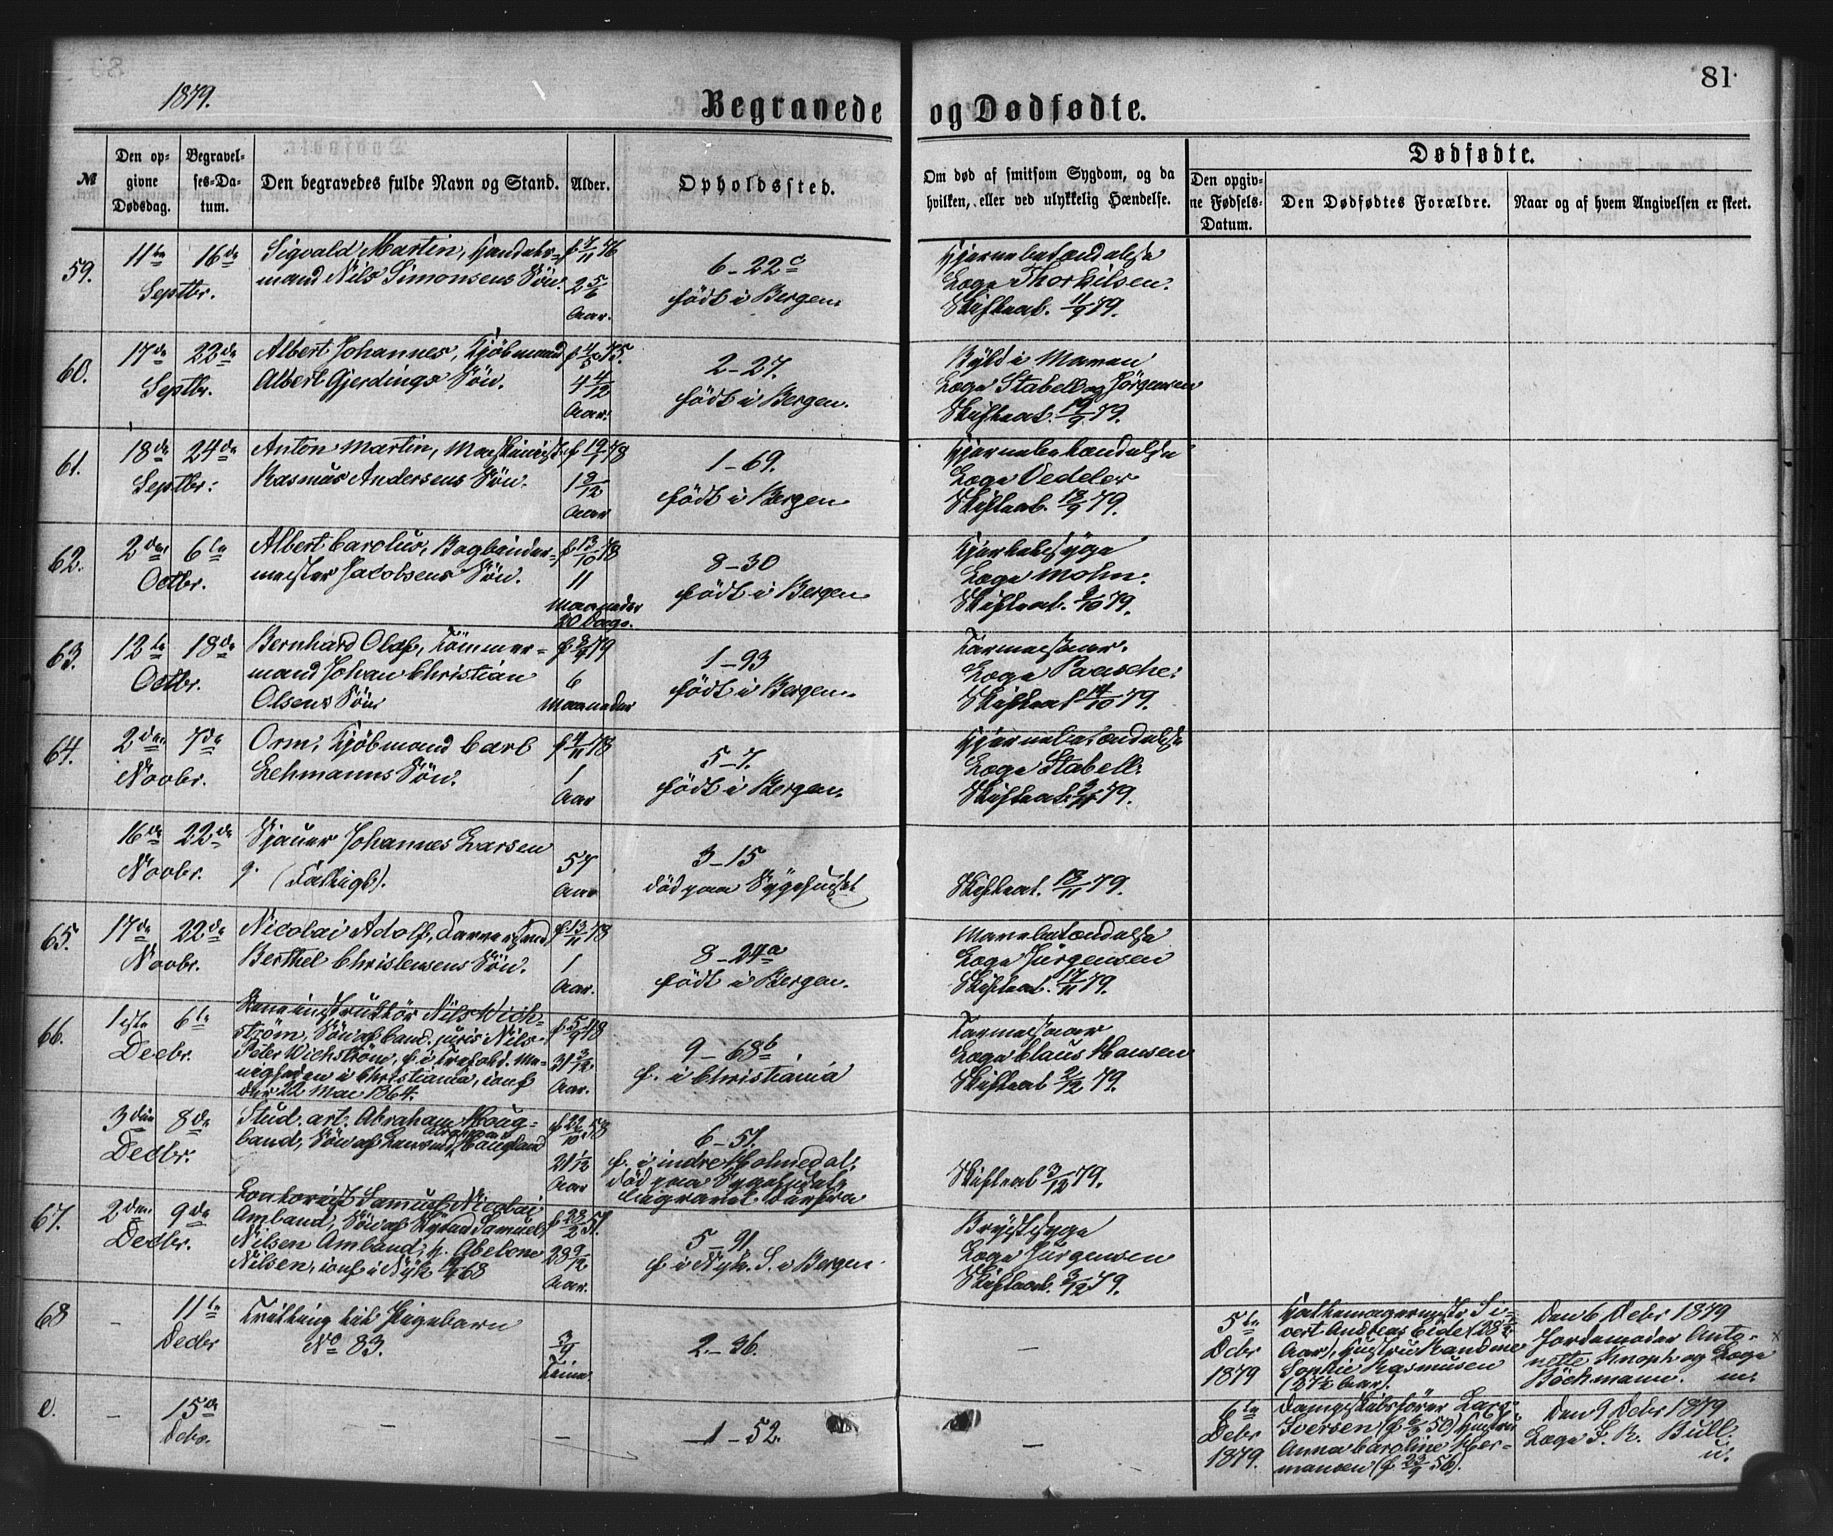 1879.
Begravede og Dødfødte.
81
№
Den op-
givne
Dødsdag.
Begravel-
ses-Da-
tum.
Den begravedes fulde Navn og Stand.
Alder.
Opholdssted.
Om død af smitsom Sygdom, og da
hvilken, eller ved ulykkelig Hændelse.
Dødfødte.
Den opgiv-
ne Fødsels-
Datum.
Den Dødfødtes Forældre.
Naar og af hvem Angivelsen er skeet.
59.
11te
Septbr.
16de
Sigvald Martin,
mand Nils Simonsens Søn.
f 7/11 76
2 5/6
Aar.
6-22c
født i Bergen.
Hjernebetændelse
Læge Thorkilsen.
Skifteat. 11/9 79.
60.
17de
Septbr.
22de
Albert Johannes, Kjøbmand
Albert Gjerdings Søn.
f 4/5 75.
4 4/12
Aar.
2-27.
født i Bergen.
Byld i Maven
Læge Stabell og Jörgensen
Skifteat. 19/9 79.
61.
18de
Septbr.
24de
Anton Martin, Maskinist
Rasmus Andersens Søn.
f 19/7 78
1 2/12
Aar
1-69.
født i Bergen
Hjernebetændelse
Læge Vedeler
Skifteat. 18/9 79.
62.
2den
Octbr.
6te
Albert Carolus, Bogbinder-
mester Jacobsens Søn.
f 13/10 78
11
Maaneder
20 Dage.
8-30
født i Bergen
Læge Mohn.
Skifteat. 2/10 79.
63.
12te
Octbr.
18de
Bernhard Olaf, Tømmer-
mand Johan Christian
Olsens Søn
f 3/4 79
6
Maaneder
1-93
født i Bergen.
Læge Paasche.
Skifteat 14/10 79.
64.
2den
Novbr.
7de
Orm, Kjøbmand Carl
Lehmanns Søn.
f 4/11 78
1
Aar
5-7.
født i Bergen.
Hjernebetændelse
Læge Stabell.
Skifteat. 3/11 79.
16de
Novbr.
22de
Sjauer Johannes Larsen
g. (Fattigl).
57
Aar
3-15
død paa Sygehuset
Skifteat. 18/11 79.
65.
17de
Novbr.
22de
Nicolai Adolf, Farversvend
Berthel Christensens Søn.
f 13/11 78
1
Aar.
8-24a
født i Bergen.
Mavebetændelse
Læge Jürgensen
Skifteat. 17/11 79.
66.
1ste
Decbr.
6te
Nils Wich-
ström, Søn af Cand. juris Nils
Peter Wichström, f. i Trefold. Me-
nigheden i Christiania, conf
der 22 Mai 1864.
f 5/9 48
31 3/12
Aar.
9-68b
f. i Christiania
Læge Claus Hansen
Skifteat 2/12 79.
3die
Decbr.
8de
Stud. art. Abraham Houg-
land, Søn af Lensmd Haugland
f 22/10 58
21 1/12
Aar
6-51.
f. i indre Holmedal.
død paa Sygehuset,
begravet derfra
Skifteat 3/12 79.
67.
2den
Decbr.
9de
Contorist Samuel Nicolai
Amland, Søn af Samuel
Nilsen Amland, h. Abelone
Nilsen, conf i Nyk 68
f 23/2 51.
28 9/12
Aar.
5-91.
f. i Nyk. S. i Bergen.
Brystsyge
Læge Jürgensen
Skifteat. 3/12 79.
68
-
11te
Decbr
Tvilling til Pigebarn
No 83.
3/9
Time
2-36.
-
5te
Dcbr
1879
Hattemagersvd Si-
vert Andreas Eide (28½
Aar), Hustru Randine
Sophie Rasmusen
(27½ Aar).
Den 6 Decbr 1879
Jordemoder Anto-
nette Knoph og Læge
Böckmann. m.
d.
-
15de
Debr.
-
-
1-52.
-
6te
Decbr
1879.
Dampskibsfører Lars
Iversen (f 6/3 50) Hustru
Anna Caroline Her-
mansen (f 23/9 56).
Den 9 Decbr 1879
Læge F. R. Bull.
u.